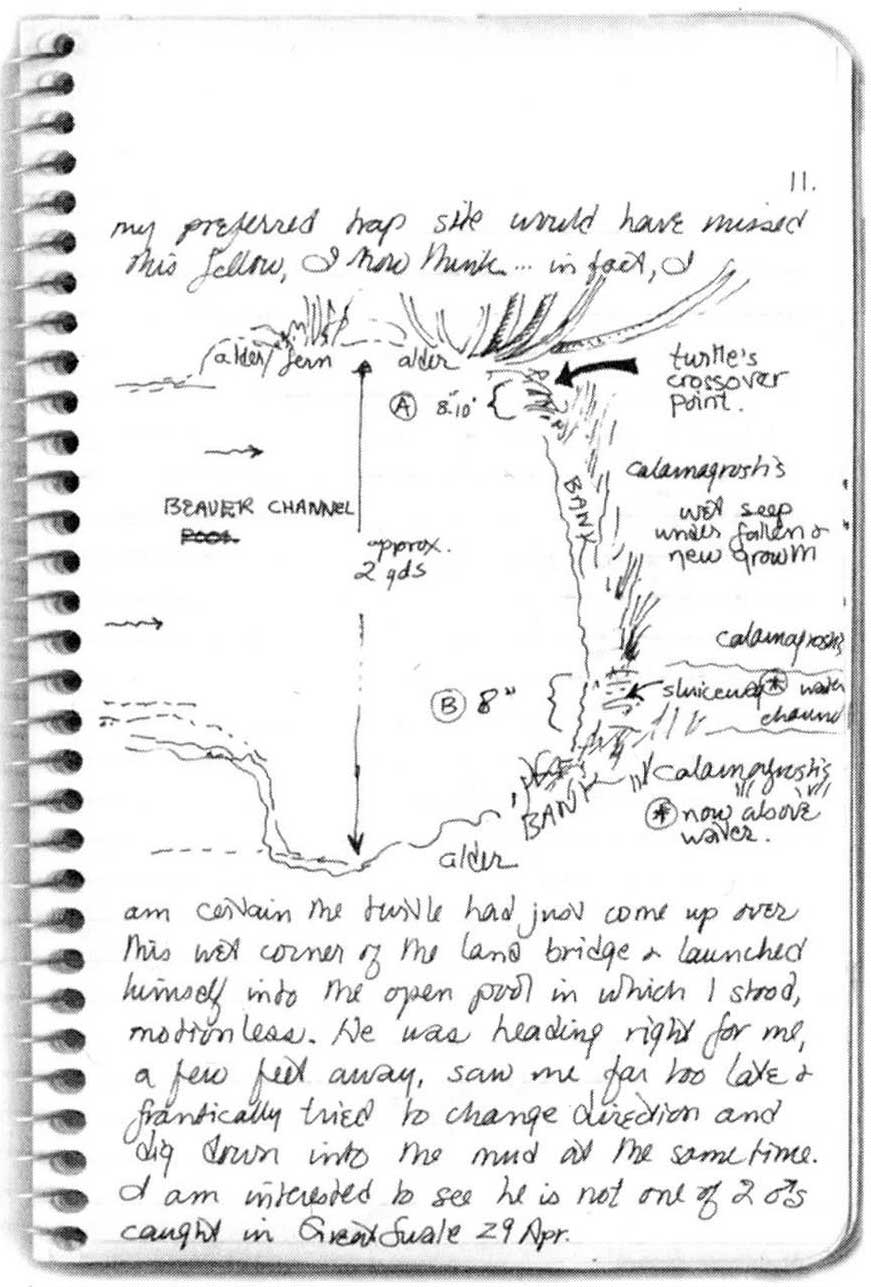 11.
my preferred trap site would have missed
this fellow, I now think... in fact, I
alder/fern
alder
turtle's
crossover
point.
Ⓐ 8"-10"
calamagrostis
BANK
wet seep
under fallen &
new growth
BEAVER CHANNEL
POOL
approx.
2 yds
calamagrostis
Ⓑ 8"
sluiceway * water
channel
calamagrostis
BANK
* now above
water.
alder
am certain the turtle had just come up over
this wet corner of the land bridge & launched
himself into the open pool in which I stood,
motionless. He was heading right for me,
a few feet away, saw me far too late &
frantically tried to change direction and
dig down into the mud at the same time.
I am interested to see he is not one of 2 ♂s
caught in Great Swale 29 Apr.